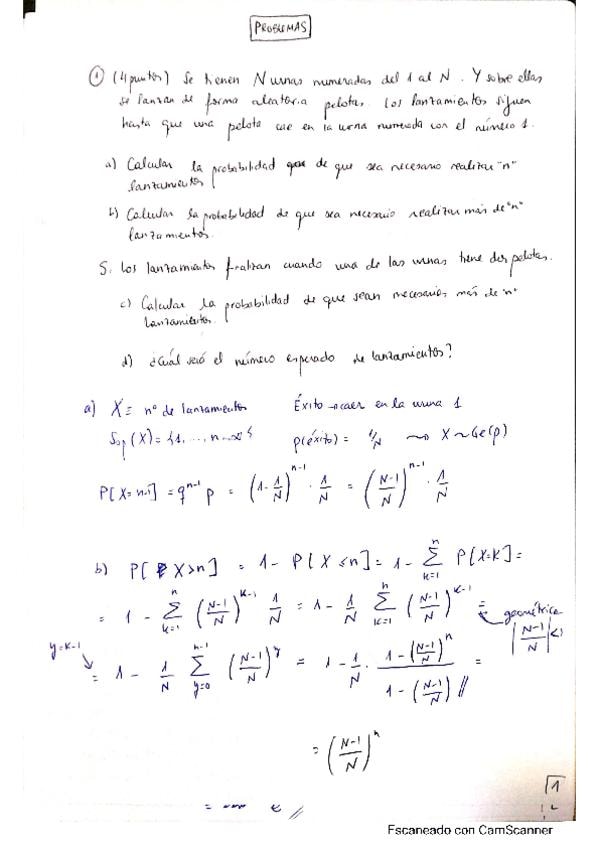 PROBLEMAS
① (4 puntos) Se tienen N urnas numeradas del 1 al N. Y sobre ellas
se lanzan de forma aleatoria pelotas. Los lanzamientos siguen
hasta que una pelota cae en la urna numerada con el número 1.
a) Calcular la probabilidad de que sea necesario realizar "n"
lanzamientos
b) Calcular la probabilidad de que sea necesario realizar más de "n"
lanzamientos.
Si los lanzamientos finalizan cuando una de las urnas tiene dos pelotas.
c) Calcular la probabilidad de que sean necesarios más de "n"
lanzamientos.
d) ¿Cuál será el número esperado de lanzamientos?
a) X = nº de lanzamientos Éxito → caer en la urna 1
Sop(X) = {1, ..., n ... ∞} p(éxito) = 1/N ⇝ X ~ Ge(p)
P[X = n-1] = q^{n-1} p = (1 - 1/N)^{n-1} · 1/N = ((N-1)/N)^{n-1} · 1/N
b) P[X > n] = 1 - P[X ≤ n] = 1 - Σ_{k=1}^{n} P[X=k] =
= 1 - Σ_{k=1}^{n} ((N-1)/N)^{k-1} 1/N = 1 - 1/N Σ_{k=1}^{n} ((N-1)/N)^{k-1} =
geométrica
|(N-1)/N| < 1
y = k-1
= 1 - 1/N Σ_{y=0}^{n-1} ((N-1)/N)^y = 1 - 1/N · (1 - ((N-1)/N)^n)/(1 - ((N-1)/N)) // =
= ((N-1)/N)^n
1
Escaneado con CamScanner